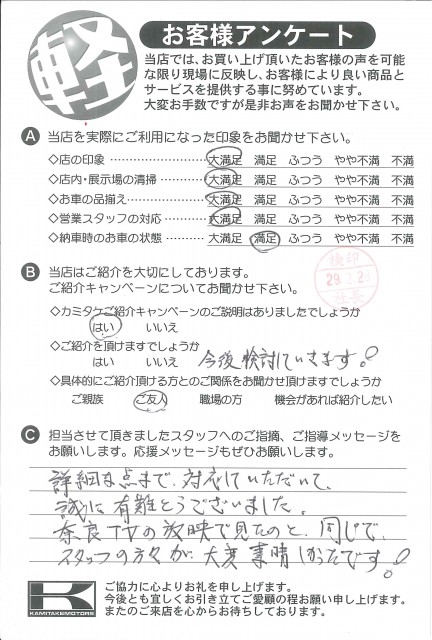 軽
お客様アンケート
当店では、お買い上げ頂いたお客様の声を可能
な限り現場に反映し、お客様により良い商品と
サービスを提供する事に努めています。
大変お手数ですが是非お声をお聞かせ下さい。
A 当店を実際にご利用になった印象をお聞かせ下さい。
◇店の印象 ………………… 大満足 満足 ふつう やや不満 不満
◇店内・展示場の清掃 ………… 大満足 満足 ふつう やや不満 不満
◇お車の品揃え ……………… 大満足 満足 ふつう やや不満 不満
◇営業スタッフの対応 ………… 大満足 満足 ふつう やや不満 不満
◇納車時のお車の状態 ………… 大満足 満足 ふつう やや不満 不満
検印
29.2.2
社長
B 当店はご紹介を大切にしております。
ご紹介キャンペーンについてお聞かせ下さい。
◇カミタケご紹介キャンペーンのご説明はありましたでしょうか
はい いいえ
◇ご紹介を頂けますでしょうか
はい いいえ 今後検討していきます!
◇具体的にご紹介頂ける方とのご関係をお聞かせ頂けますでしょうか
ご親族 ご友人 職場の方 機会があれば紹介したい
C 担当させて頂きましたスタッフへのご指摘、ご指導メッセージを
お願いします。応援メッセージもぜひお願いします。
詳細な点まで、対応していただいて、
誠に有難とうございました。
奈良TVの放映で見たのと、同じで、
スタッフの方々が、大変素晴しかったです!
K
KAMITAKEMOTORS
ご協力に心よりお礼を申し上げます。
今後とも宜しくお引き立てご愛顧の程お願い申し上げます。
またのご来店を心からお待ちしております。